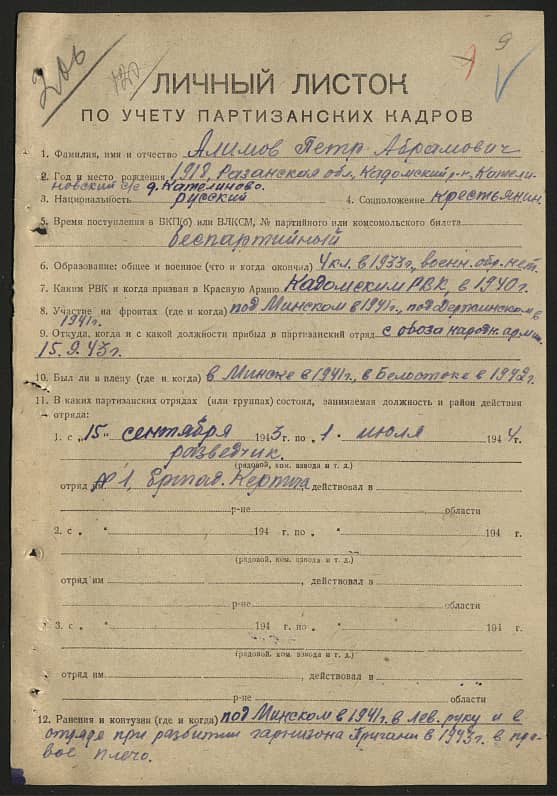 206
120
9
ЛИЧНЫЙ ЛИСТОК
ПО УЧЕТУ ПАРТИЗАНСКИХ КАДРОВ
1. Фамилия, имя и отчество Алимов Петр Абрамович
2. Год и место рождения 1918, Разанская обл, Кадомский р-н, Катели-
новский с/с д. Кателиново.
3. Национальность русский 4. Соцположение крестьянин
5. Время поступления в ВКП(б) или ВЛКСМ, № партийного или комсомольского билета
беспартийный
6. Образование: общее и военное (что и когда окончил) 4 кл. в 1933г., военн. обр. нет.
7. Каким РВК и когда призван в Красную Армию Кадомским РВК, в 1940г.
8. Участие на фронтах (где и когда) под Минском в 1941г., под Держинском в
1941г.
9. Откуда, когда и с какой должности прибыл в партизанский отряд с обоза народн. армии
15.9.43г.
10. Был ли в плену (где и когда) в Минске в 1941г., в Белостоке в 1942г.
11. В каких партизанских отрядах (или группах) состоял, занимаемая должность и район действия
отряда:
1. с „15" сентября 1943 г. по „1" июля 1944 г.
разведчик.
(рядовой, ком. взвода и т. д.)
отряд им № 1, действовал в
р-не области
2. с „ " 194 г. по „ " 194 г.
(рядовой, ком. взвода и т. д.)
отряд им , действовал в
р-не области
3. с „ " 194 г. по „ " 194 г.
(рядовой, ком. взвода и т. д.)
отряд им , действовал в
р-не области
12. Ранения и контузии (где и когда) под Минском в 1941г. в лев. руку и в
отряде при развитии гарнизона в 1943г. в пра-
вое плечо.